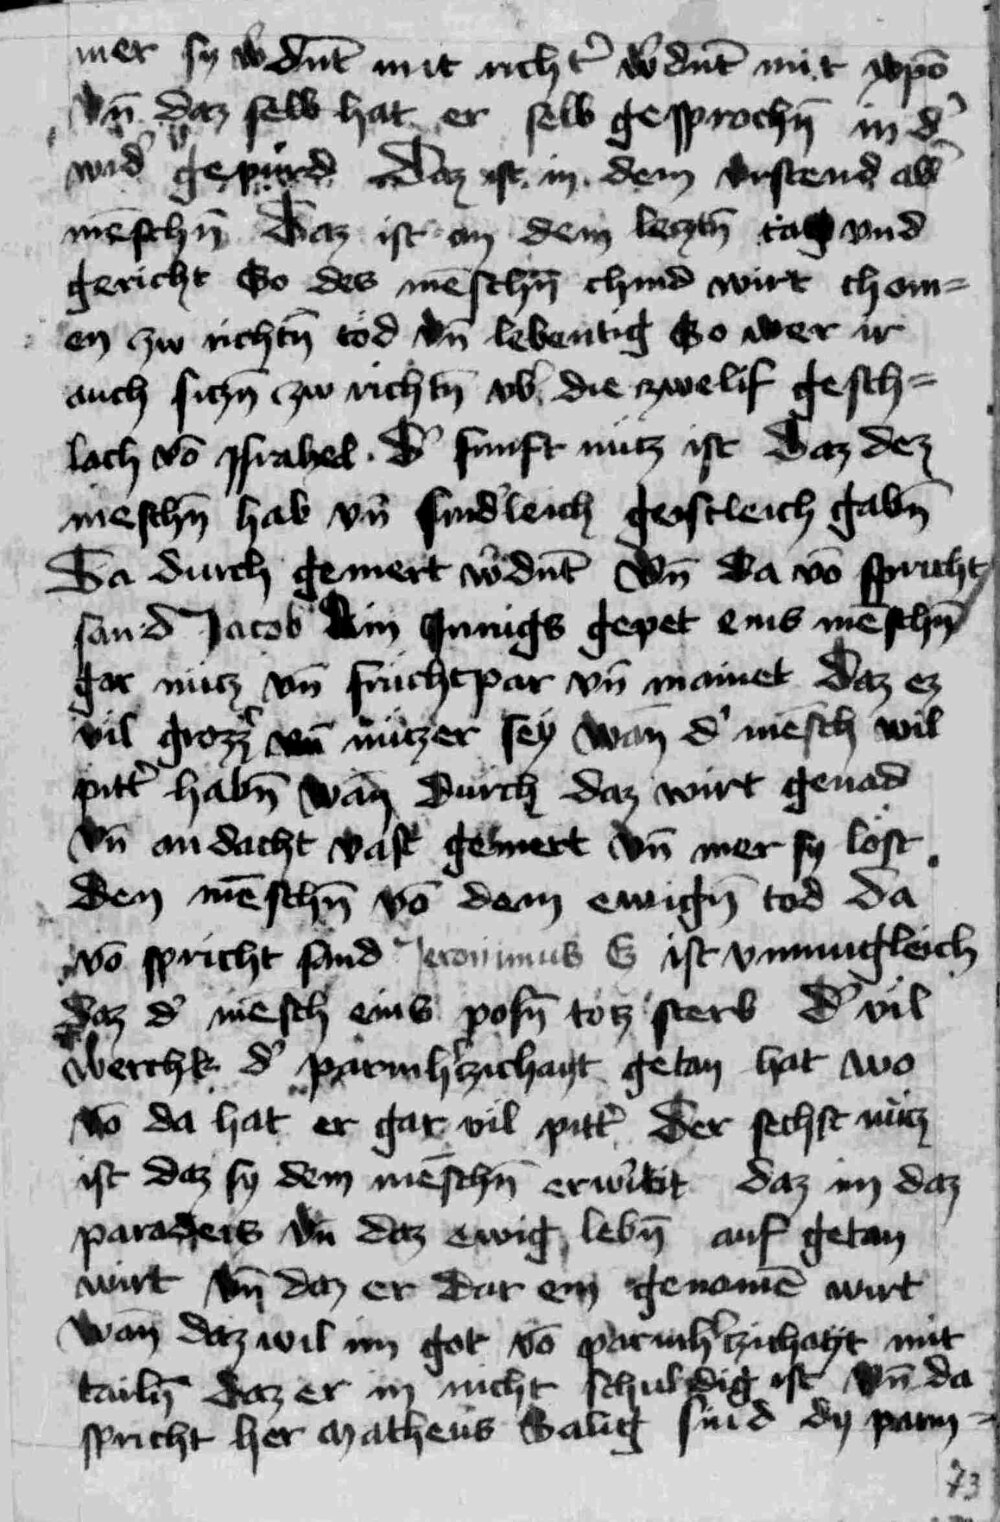 mer sy wˀdnt̄ mit richtˀ wˀdnt̄ mit xp̄o
vn̄ daz selb hat er selb gesprochn̄ in dˀ
widˀ gepurd Daz ist in dem vrstend allˀ
mēschn̄ Daz ist an dem letztn̄ tag vnd
gericht So des mēschn̄ chind wirt chom=
en zw richtn̄ tod vn̄ lebentig So wer ir
auch sitzn̄ zw richtn̄ vbˀ die zwelif gesch=
lach vō ysrahel . Dˀ funft nutz ist Daz dez
meschn̄ hab vn̄ sundˀleich geistleich gabn̄
Da durch gemert wˀdnt̄ Vn̄ da vō spricht
sand Jacob Ain ynnigs gepet eins mēschn̄
gar nutz vn̄ fruchtpar vn̄ mainet Daz ez
vil grozzˀ vn̄ nutzer sey wan̄ dˀ mēsch wil
pittˀ habn̄ wan̄ durch daz wirt genad
vn̄ andacht vast gemert vn̄ mer sy lost
den mēschn̄ vō dem ewign̄ tod da
vō spricht sand Jeronimus Es ist vnmugleich
daz dˀ mēsch eins posn̄ totz sterb Dˀ vil
werchk dˀ parmhˀtzichayt getan hat wo
vō da hat er gar vil pittˀ Der sechst nutz
ist daz sy dem mēschn̄ erwˀbit daz im daz
paradeis vn̄ daz ewig lebn̄ auf getan
wirt vn̄ daz er dar ein genomē wirt
wan̄ daz wil im got vō parmhˀtzichayt mit
tailn̄ Daz er im nicht schuldig ist vn̄ da
spricht her Matheus Salig sind dy parm=
73